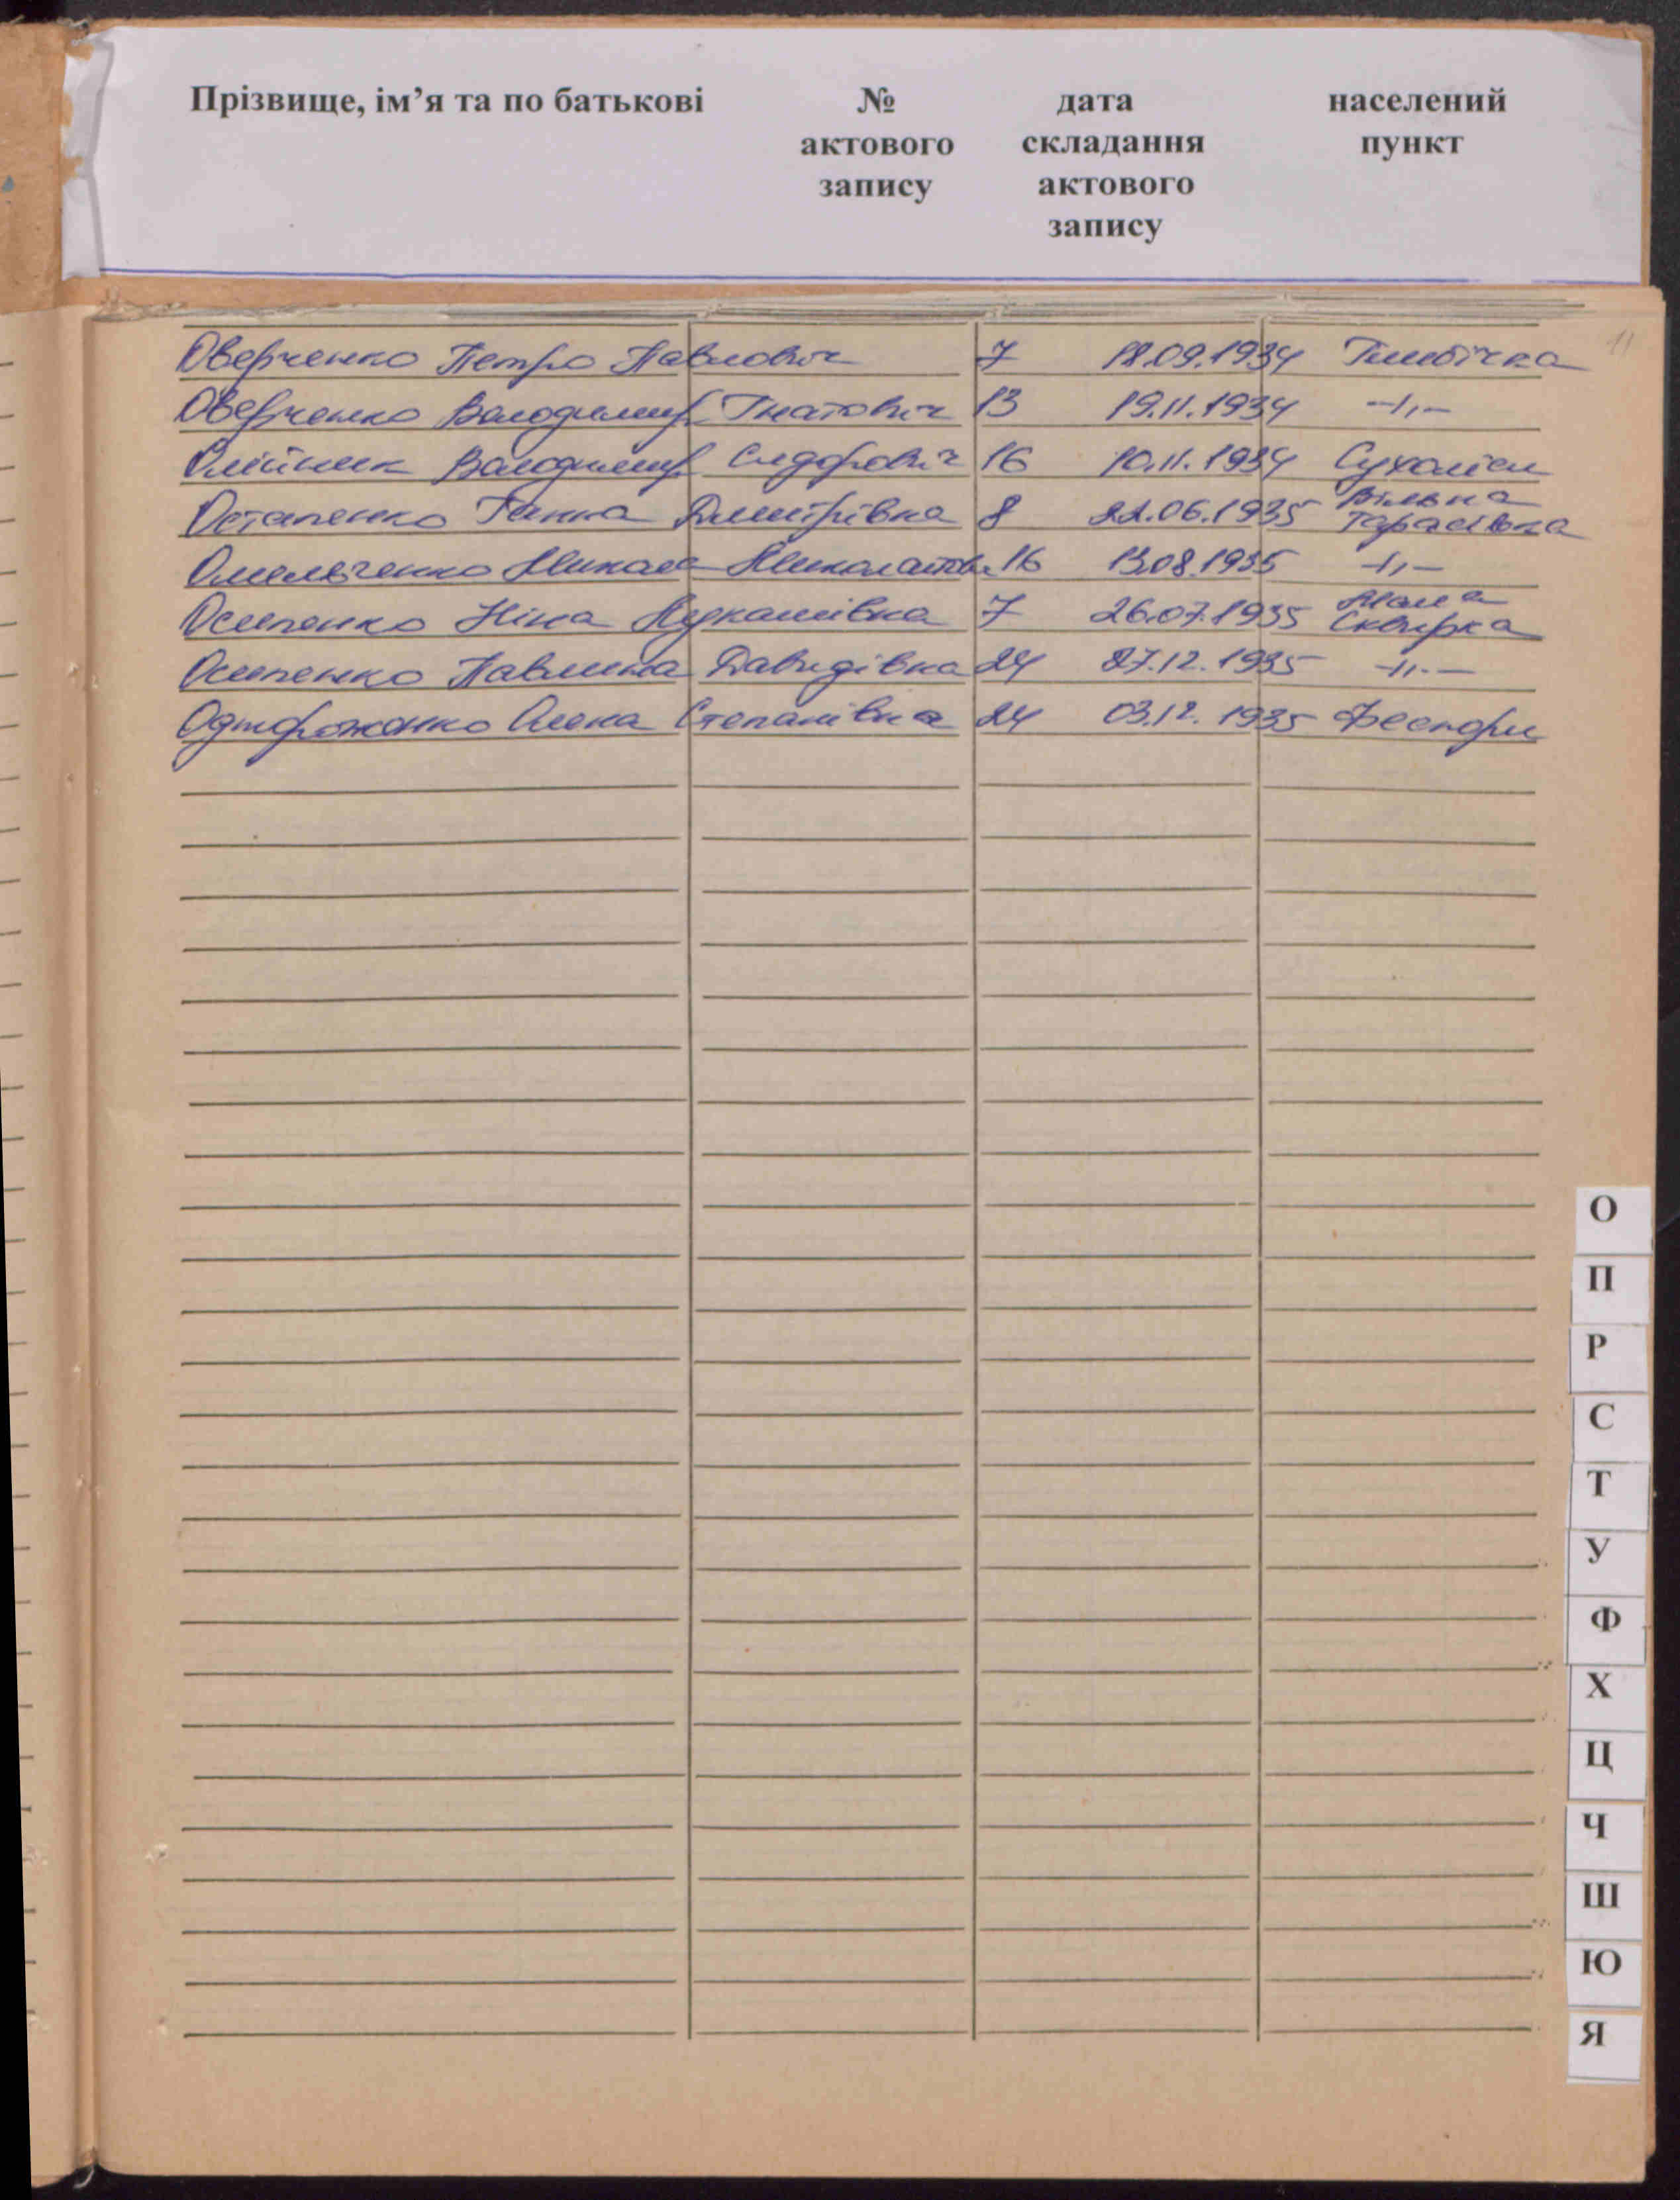 Прізвище, ім’я та по батькові № дата населений
актового складання пункт
запису актового
запису
11
Оверченко Петро Павлович 7 18.09.1934 Глибічка
Оверченко Володимир Гнатович 13 19.11.1934 -//-
Олійник Володимир Сидорович 16 10.11.1934 Сухоліси
Остапенко Ганна Дмитрівна 8 22.06.1935 Вільна
Тарасівка
Омельченко Микола 16 13.08.1935 -//-
Осипенко Ніна Лукашівна 7 26.07.1935 Мала
Сквирка
Осипенко Павлина Давидівна 24 27.12.1935 -//-
Одногороженко Олена Степанівна 24 03.12.1935
О
П
Р
С
Т
У
Ф
Х
Ц
Ч
Ш
Ю
Я